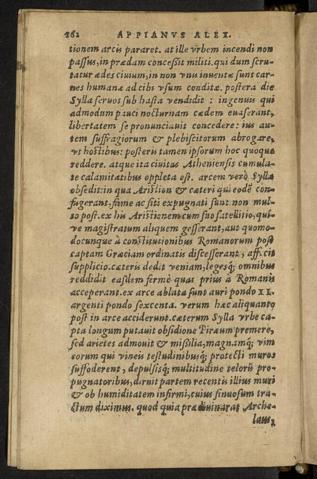 162 APPIANVS ALEX.
tionem arcis pararet. at ille vrbem incendi non
passus, in prædam concessit militi. qui dum scru-
tatur ædes ciuium, in non vnis inuentæ sunt car-
nes humanæ ad cibi vsum conditæ. postera die
Sylla seruos sub hasta vendidit : ingenuis qui
admodum pauci nocturnam cædem euaserant,
libertatem se pronunciauit concedere: ius au-
tem suffragiorum & plebiscitorum abrogare,
vt hostibus: posteris tamen ipsorum hoc quoque
reddere. atque ita ciuitas Atheniensis cumula-
te calamitatibus oppleta est. arcem verò Sylla
obsedit: in qua Aristion & cæteri qui eodē con-
fugerant, fame ac siti expugnati sunt non mul-
to post. ex his Aristionem cum suo satellitio, qui-
ve magistratum aliquem gesserant, aut quomo-
docunque à constitutionibus Romanorum post
captam Græciam ordinatis discesserant, affecit
supplicio. cæteris dedit veniam, legesq; omnibus
reddidit easdem fermè quas prius à Romanis
acceperant. ex arce ablata sunt auri pondo XL.
argenti pondo sexcenta. verum hæc aliquanto
post in arce acciderunt. cæterum Sylla vrbe ca-
pta longum putauit obsidione Piræum premere,
sed arietes admouit & missilia, magnamq; vim
eorum qui vineis testudinibusq; protecti muros
suffoderent, depulsisq; multitudine telorū pro-
pugnatoribus, diruit partem recentis illius muri
& ob humiditatem infirmi, cuius sinuosum tra-
ctum diximus. quod quia prædiuinarat Arche-
laus,